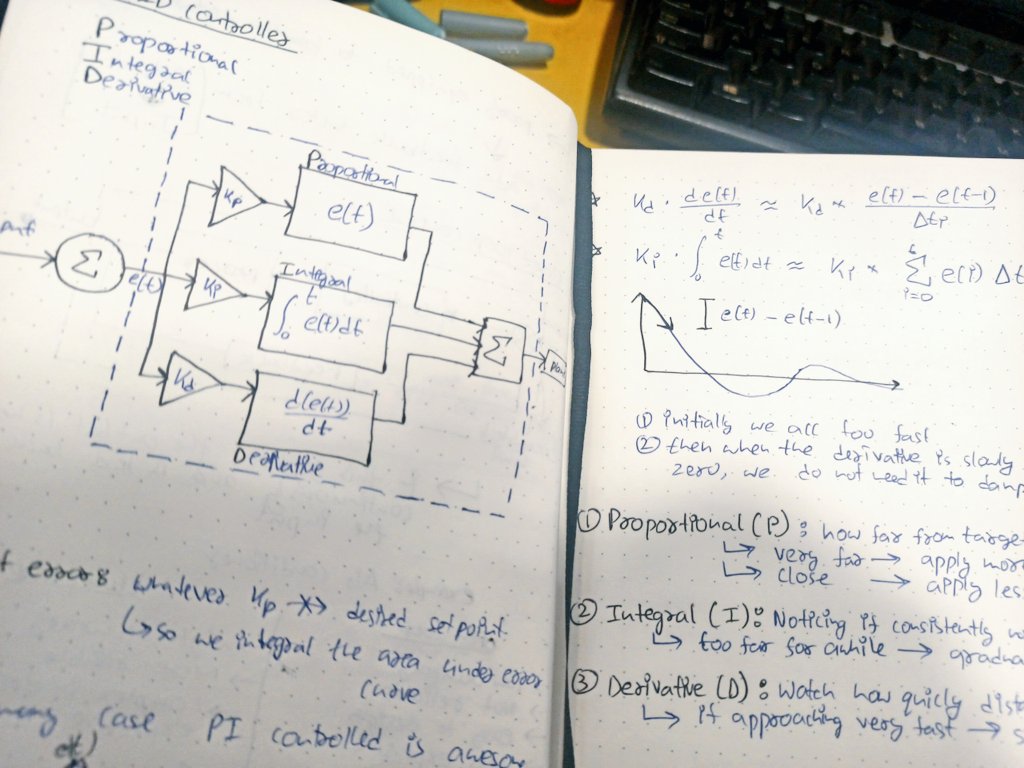 ID controller
Proportional
Integral
Derivative
Proportional
Kp
e(t)
Σ
e(t)
Integral
Ki
∫₀ᵗ e(t)dt
Σ
Kd
d(e(t))/dt
Derivative
error: whatever Kp desired setpoint.
↳ so we integral the area under error
curve
case PI controlled is awesom
Kd · de(t)/dt ≈ Kd * e(t) – e(t-1)/Δt
Ki · ∫₀ᵗ e(t)dt ≈ Ki * Σᵗᵢ₌₀ e(i) Δt
I e(t) – e(t-1)
① initially we all too fast
② then when the derivative is slowly
zero, we do not need it to damp
① Proportional (P): how far from targe
↳ very far → apply mor
↳ close → apply les
② Integral (I): Noticing if consistently
↳ too far for awhile → gradua
③ Derivative (D): Watch how quicly dist
↳ if approaching very fast → s